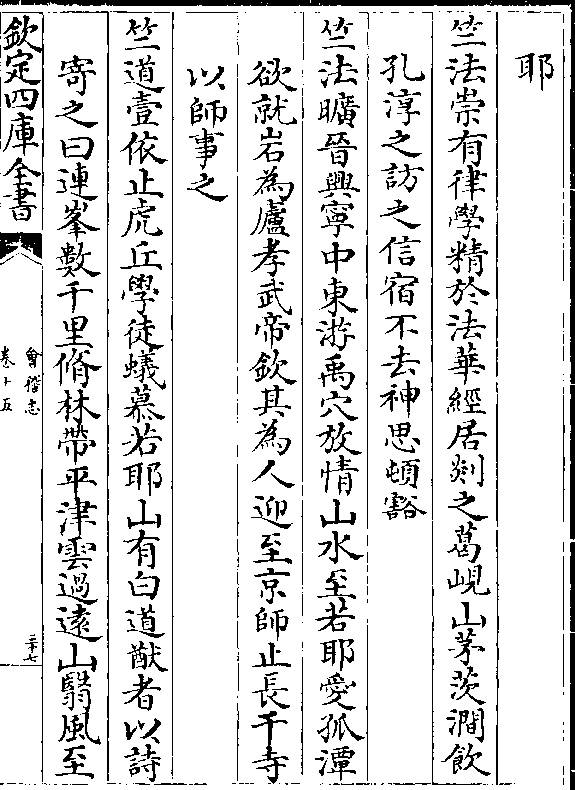 耶
竺法崇有律學精於法華經居剡之葛峴山茅茨澗飲
孔淳之訪之信宿不去神思頓豁
竺法曠晉興寧中東游禹穴放情山水至若耶愛孤潭
欲就岩為廬孝武帝欽其為人迎至京師止長干寺
以師事之
竺道壹依止虎丘學徒蟻慕若耶山有白道猷者以詩
寄之曰連峯數千里脩林帶平津雲過逺山翳風至
欽定四庫全書
會稽志
卷十五
三十七